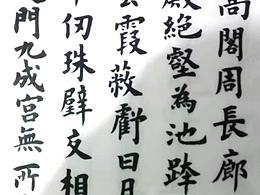 高閣周長廊
殿絕壑為池跨
霞蔽虧日月
仞珠璧交相
門九成宮無所